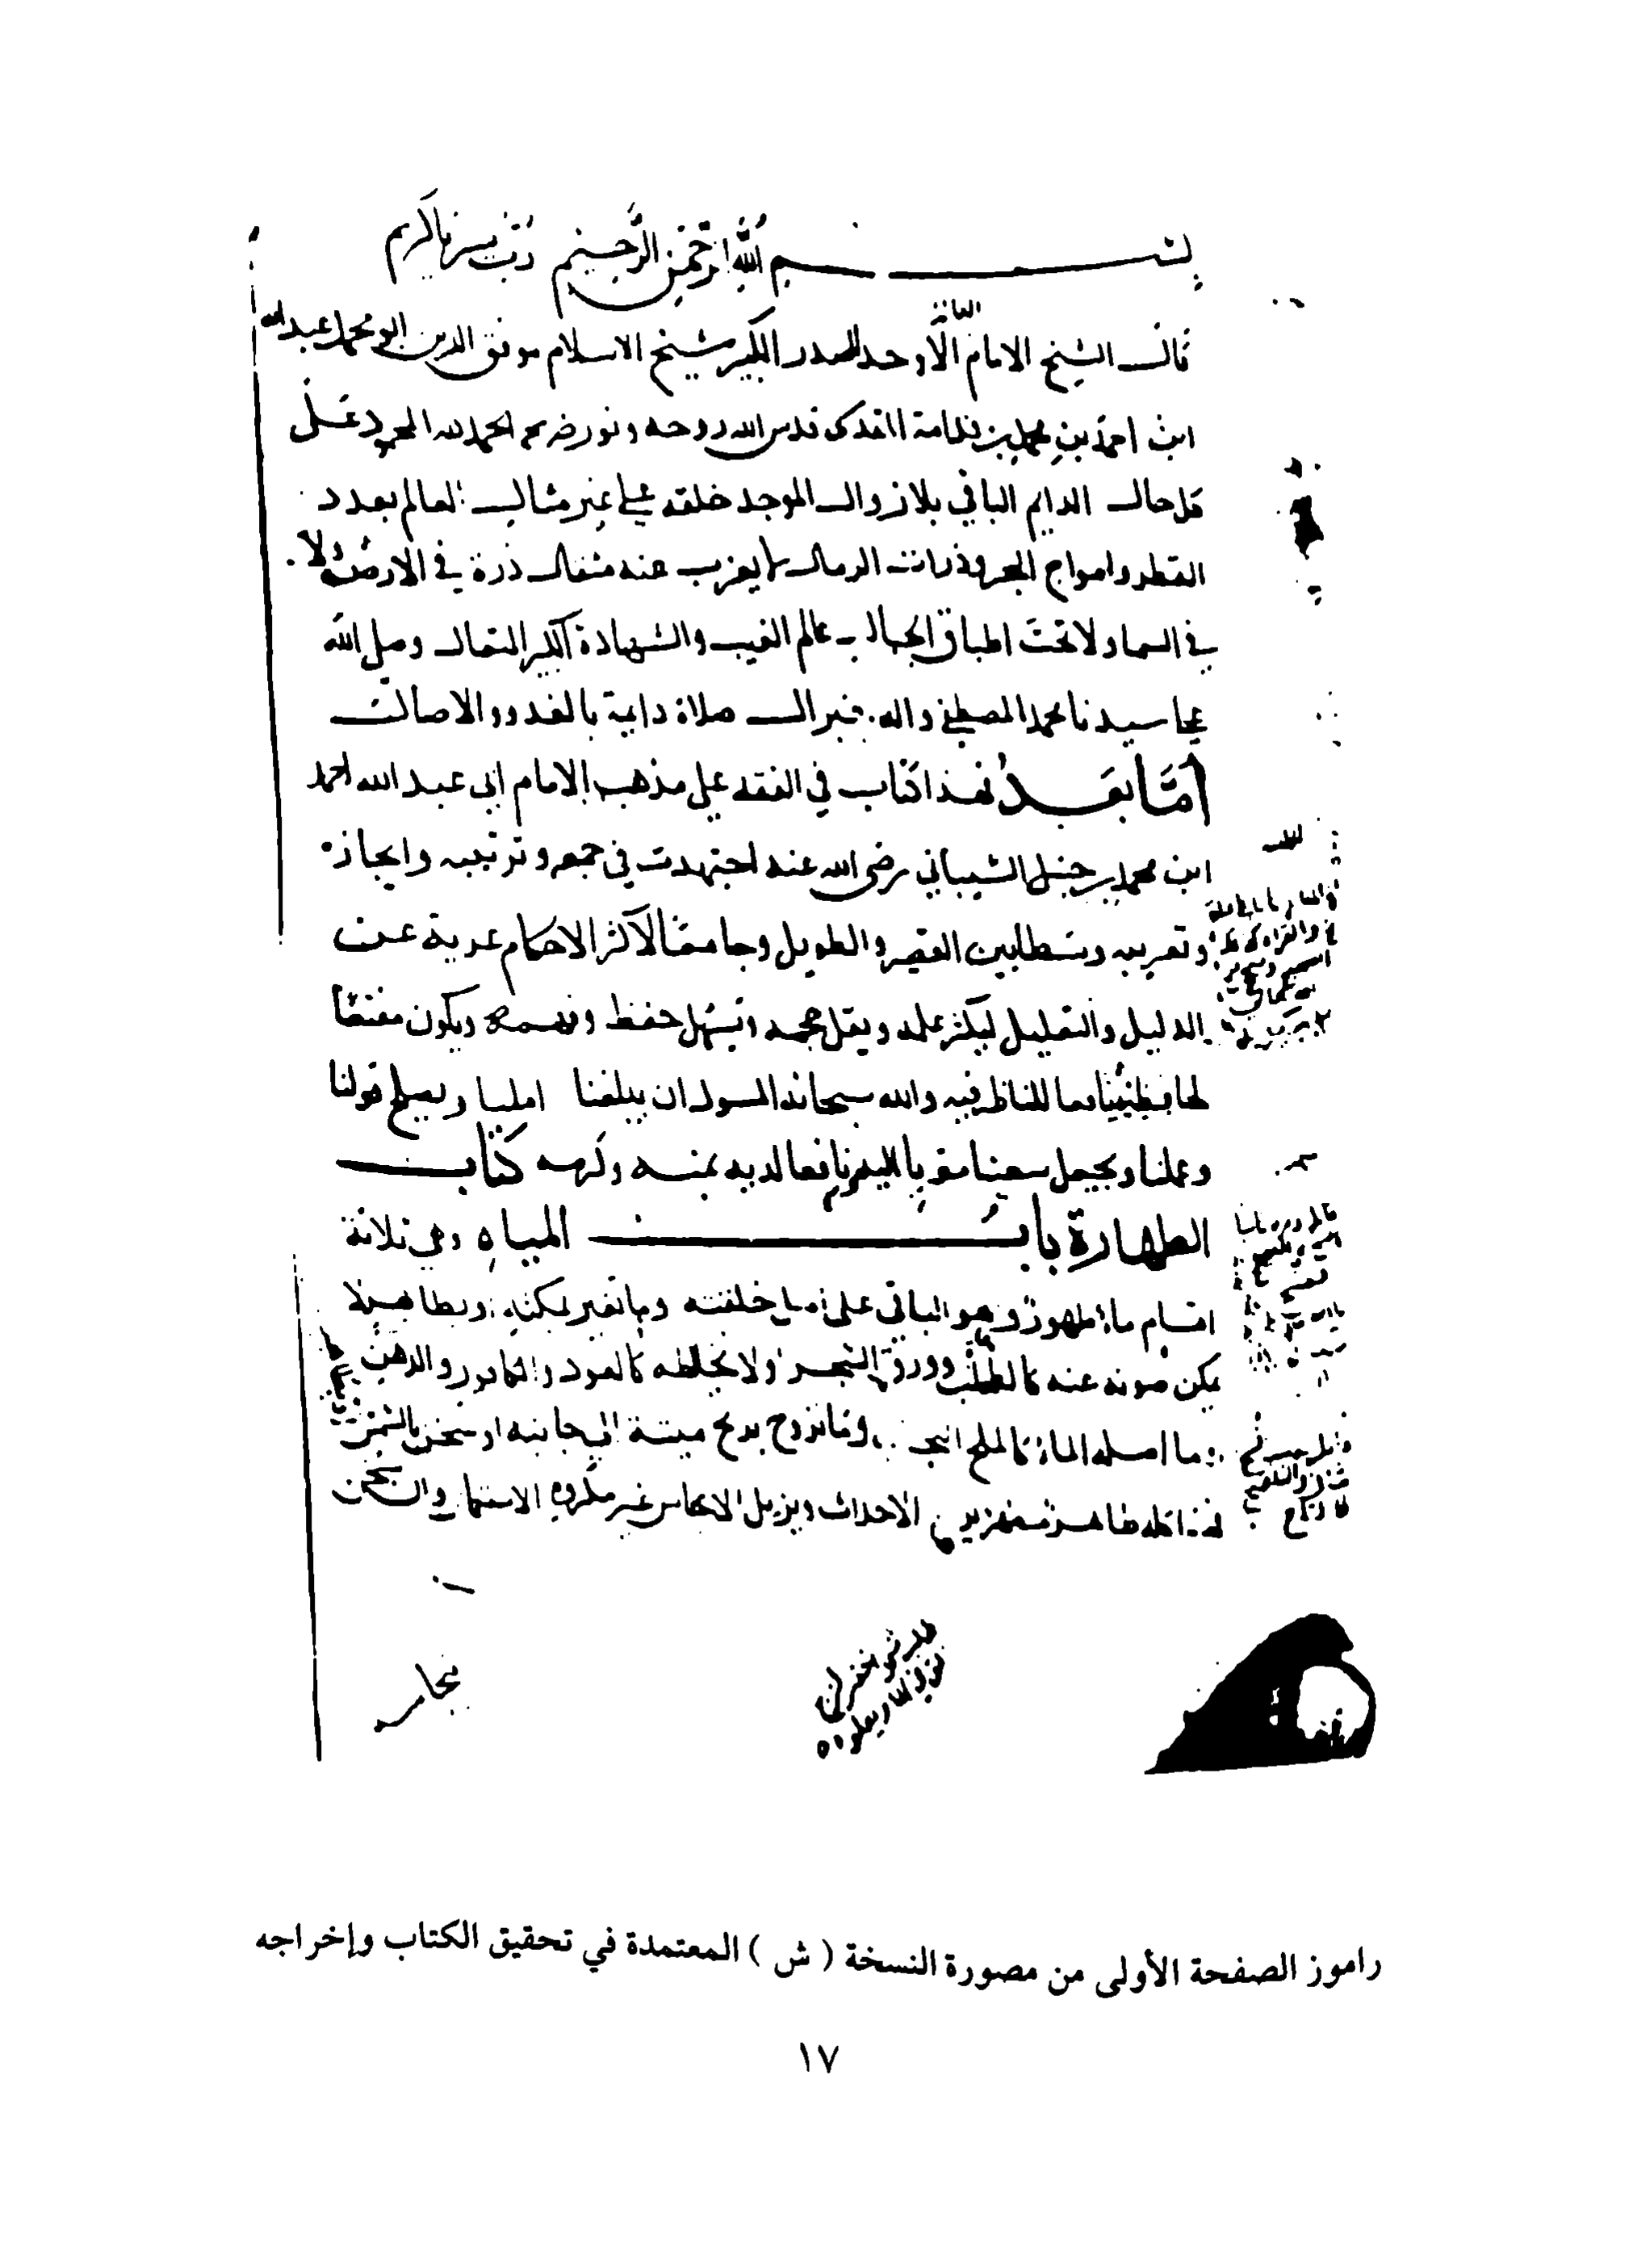 بسم الله الرحمن الرحيم رب يسر يا كريم
قال الشيخ الامام العالم الاوحد الصدر الكبير شيخ الاسلام موفق الدين ابو محمد عبد الله
ابن احمد بن محمد بن قدامة المقدسي قدس الله روحه ونور ضريحه الحمد لله المحمود على
كل حال الدايم الباقي بلا زوال الموجد خلقه على غير مثال العالم بعدد
القطر وامواج البحر وذرات الرمال لا يعزب عنه مثقال ذرة في الارض ولا
في السما ولا تحت اطباق الجبال عالم الغيب والشهادة الكبير المتعال وصلى الله
على سيدنا محمد المصطفى واله خير ال صلاة دايمة بالغدو والاصال
أما بعد فهذا كتاب في الفقه على مذهب الامام ابي عبد الله احمد
ابن محمد بن حنبل الشيباني رضي الله عنه اجتهدت في جمعه وترتيبه وايجازه
وتقريبه وسطا بين القصير والطويل وجامعا لاكثر الاحكام عرية عن
الدليل والتعليل ليكثر علمه ويقل حجمه ويسهل حفظه وفهمه ويكون مقنعا
لحافظيه نافعا للناظر فيه والله سبحانه المسول ان يبلغنا املنا ويصلح قولنا
وعملنا ويجعل سعينا مقربا اليه ونافعا لديه بمنه وكرمه كتاب
الطهارة باب المياه وهي ثلاثة
اقسام ماء طهور وهو الباقي على اصل خلقته وما تغير بمكثه او بطاهر لا
يمكن صونه عنه كالطحلب وورق الشجر او لا يخالطه كالعود والكافور والدهن
او ما اصله الماء كالملح البحري وما تروح بريح ميتة الى جانبه او سخن بالشمس
فهذا كله طاهر مطهر يرفع الاحداث ويزيل الانجاس غير مكروه الاستعمال وان سخن
راموز الصفحة الأولى من مصورة النسخة ( ش ) المعتمدة في تحقيق الكتاب وإخراجه
١٧